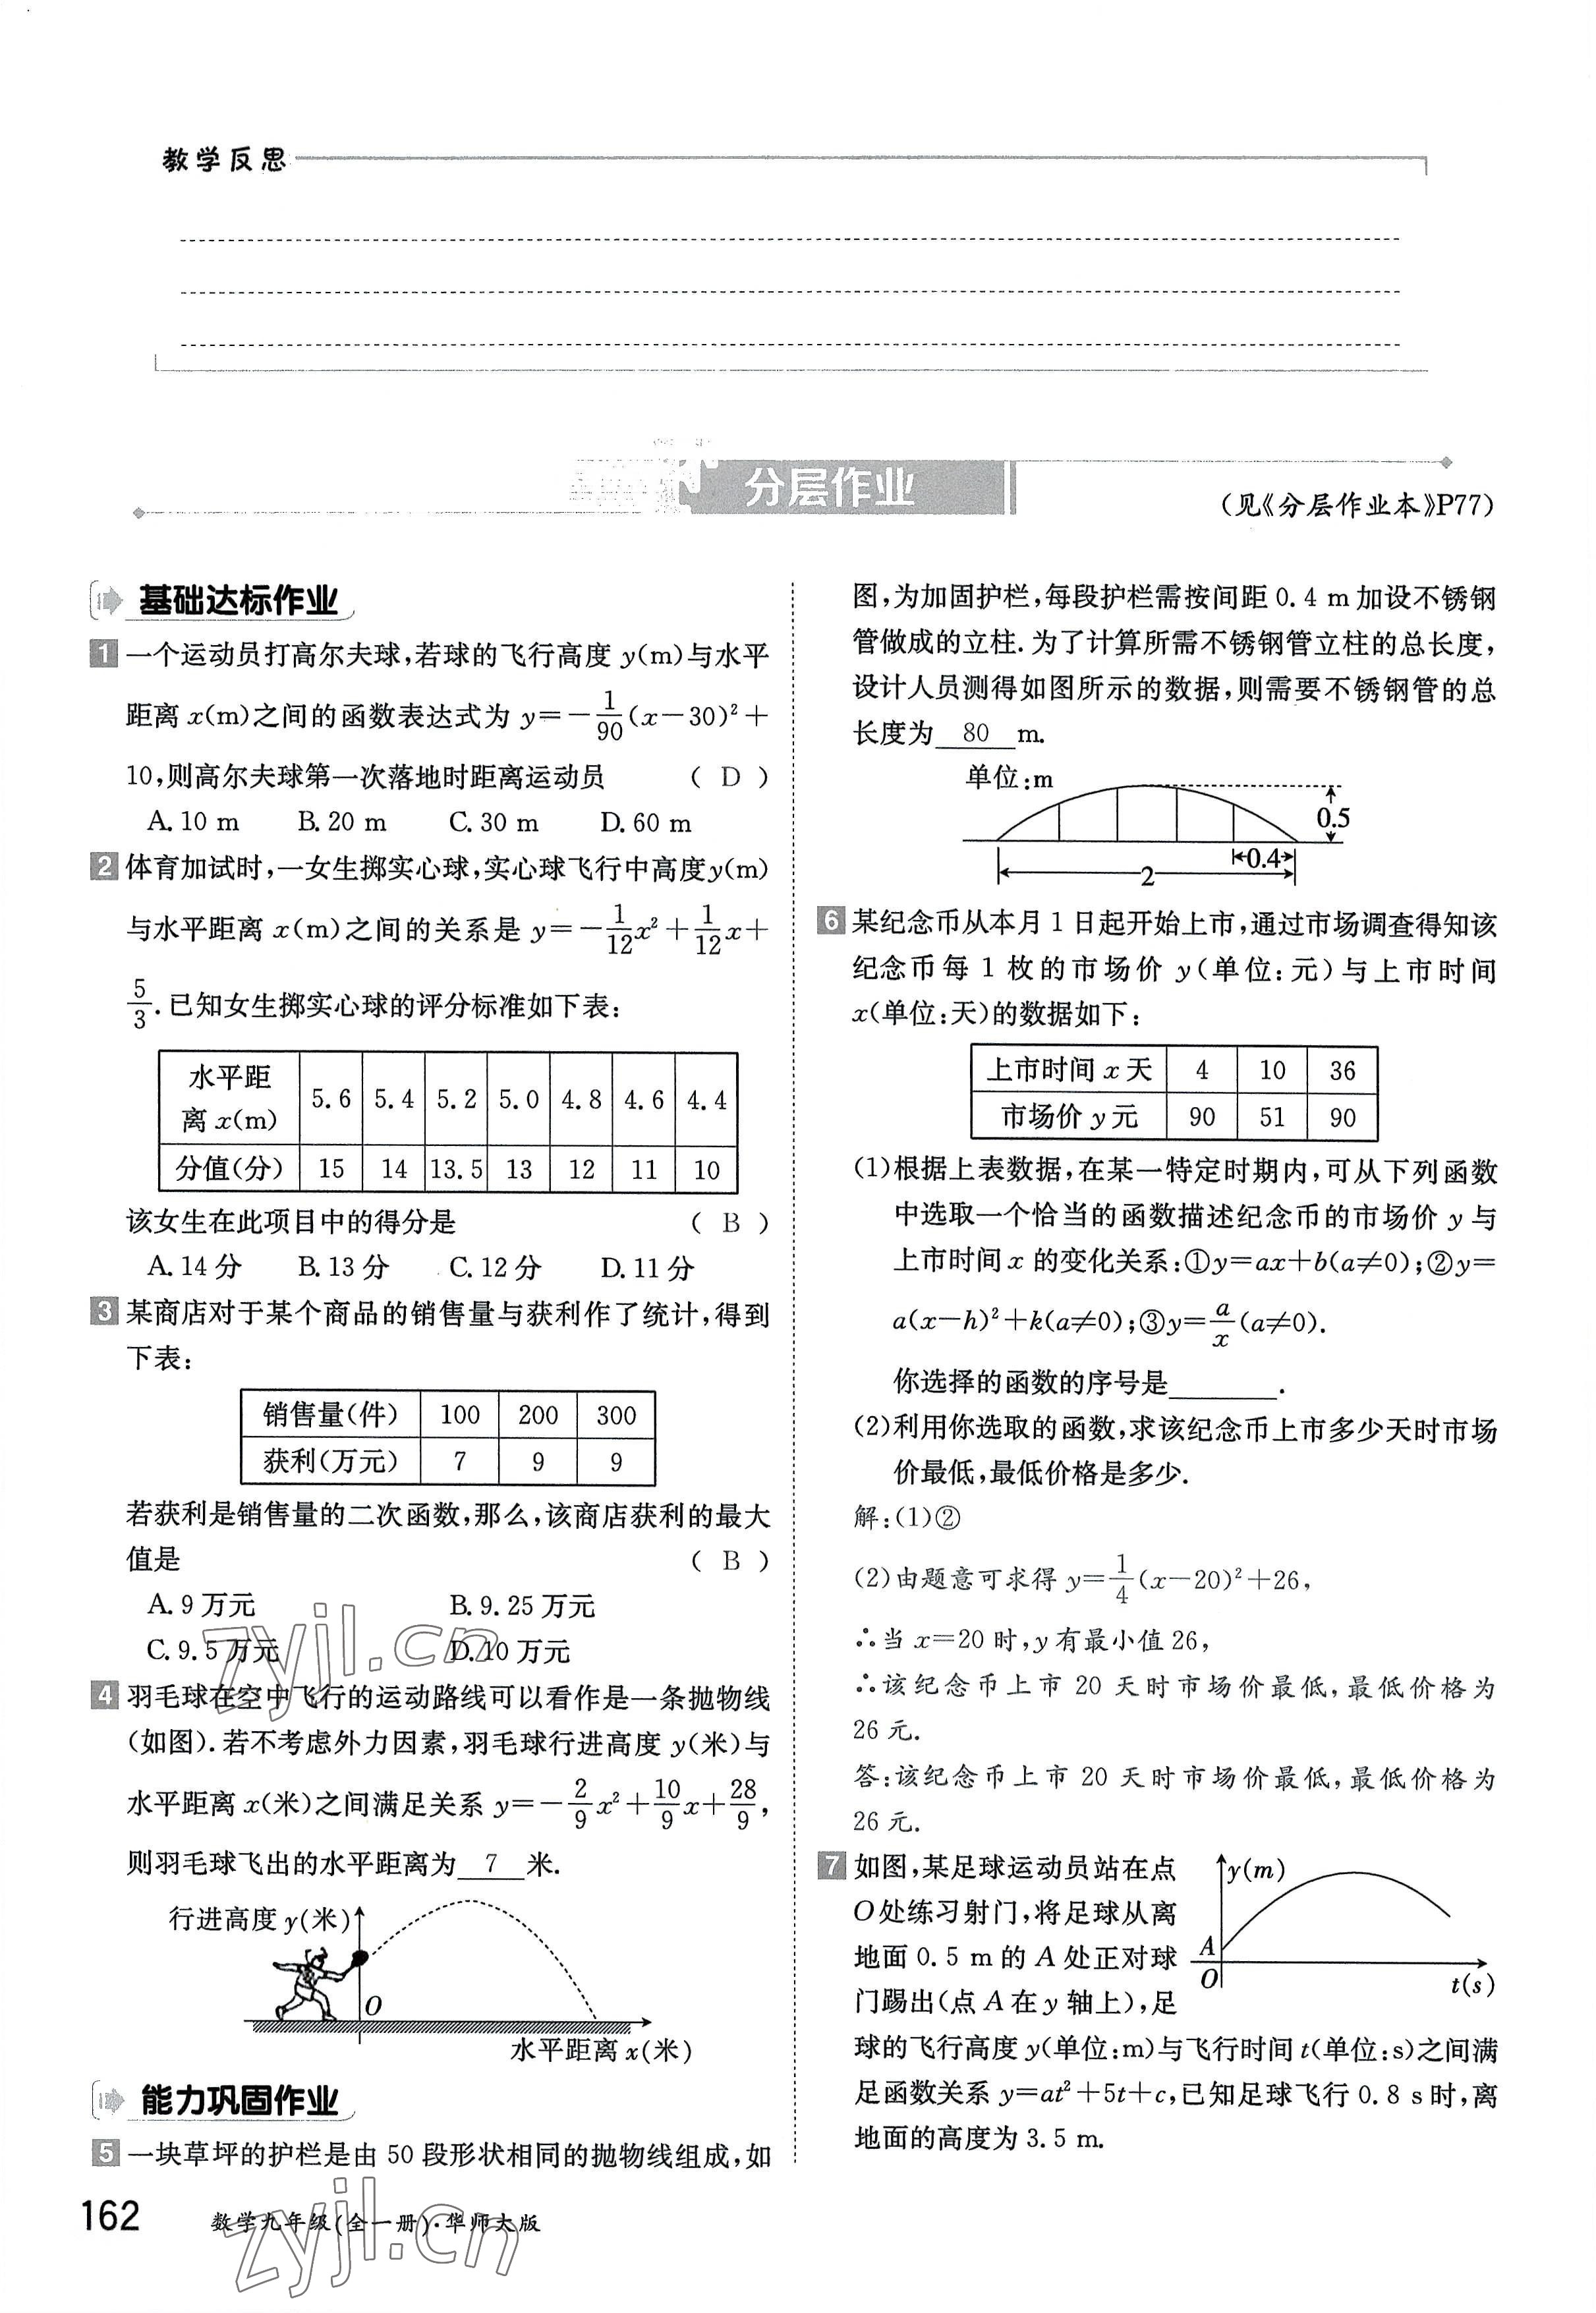 教学反思
分层作业
(见《分层作业本》P77)
基础达标作业
1 一个运动员打高尔夫球,若球的飞行高度 y(m)与水平
距离 x(m)之间的函数表达式为 y=-1/90(x-30)²+
10,则高尔夫球第一次落地时距离运动员 ( D )
A. 10 m B. 20 m C. 30 m D. 60 m
2 体育加试时,一女生掷实心球,实心球飞行中高度y(m)
与水平距离 x(m)之间的关系是 y=-1/12x²+1/12x+
5/3.已知女生掷实心球的评分标准如下表:
水平距离 x(m) 5.6 5.4 5.2 5.0 4.8 4.6 4.4
分值(分) 15 14 13.5 13 12 11 10
该女生在此项目中的得分是 ( B )
A. 14 分 B. 13 分 C. 12 分 D. 11 分
3 某商店对于某个商品的销售量与获利作了统计,得到
下表:
销售量(件) 100 200 300
获利(万元) 7 9 9
若获利是销售量的二次函数,那么,该商店获利的最大
值是 ( B )
A. 9 万元 B. 9.25 万元
C. 9.5 万元 D. 10 万元
4 羽毛球在空中飞行的运动路线可以看作是一条抛物线
(如图).若不考虑外力因素,羽毛球行进高度 y(米)与
水平距离 x(米)之间满足关系 y=-2/9x²+10/9x+28/9,
则羽毛球飞出的水平距离为 7 米.
行进高度 y(米)
O
水平距离 x(米)
能力巩固作业
5 一块草坪的护栏是由 50 段形状相同的抛物线组成,如
162 数学九年级(全一册)·华师大版
图,为加固护栏,每段护栏需按间距 0.4 m 加设不锈钢
管做成的立柱.为了计算所需不锈钢管立柱的总长度,
设计人员测得如图所示的数据,则需要不锈钢管的总
长度为 80 m.
单位:m
0.5
0.4
2
6 某纪念币从本月 1 日起开始上市,通过市场调查得知该
纪念币每 1 枚的市场价 y(单位:元)与上市时间
x(单位:天)的数据如下:
上市时间 x 天 4 10 36
市场价 y 元 90 51 90
(1)根据上表数据,在某一特定时期内,可从下列函数
中选取一个恰当的函数描述纪念币的市场价 y 与
上市时间 x 的变化关系:①y=ax+b(a≠0);②y=
a(x-h)²+k(a≠0);③y=a/x(a≠0).
你选择的函数的序号是________.
(2)利用你选取的函数,求该纪念币上市多少天时市场
价最低,最低价格是多少.
解:(1)②
(2)由题意可求得 y=1/4(x-20)²+26,
∴当 x=20 时,y 有最小值 26,
∴该纪念币上市 20 天时市场价最低,最低价格为
26 元.
答:该纪念币上市 20 天时市场价最低,最低价格为
26 元.
7 如图,某足球运动员站在点
O处练习射门,将足球从离
地面 0.5 m 的 A 处正对球
门踢出(点 A 在 y 轴上),足
y(m)
A
O
t(s)
球的飞行高度 y(单位:m)与飞行时间 t(单位:s)之间满
足函数关系 y=at²+5t+c,已知足球飞行 0.8 s 时,离
地面的高度为 3.5 m.
zyjl.cn
zyjl.cn